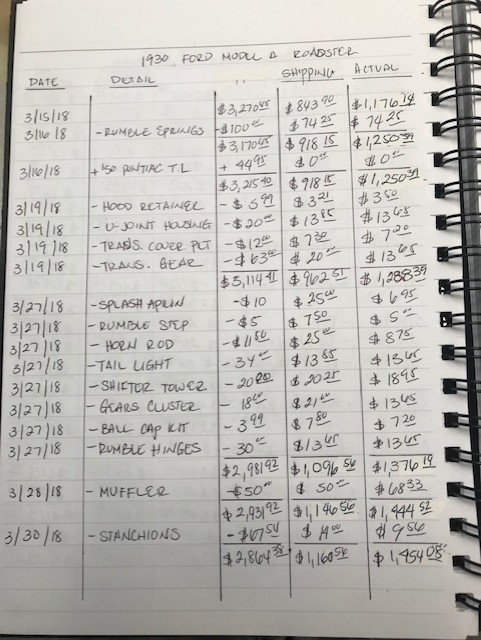 1930 FORD MODEL A ROADSTER
DATE DETAIL '' SHIPPING ACTUAL
3/15/18 $3,270.45 $843.90 $1,176.14
3/16/18 - RUMBLE SPRINGS -$100.00 $74.25 $74.25
$3,170.45 $918.15 $1,250.39
3/16/18 + '50 PONTIAC T.L + 44.95 $0.00 $0.00
$3,215.40 $918.15 $1,250.39
3/19/18 - HOOD RETAINER - $5.99 $3.21 $3.50
3/19/18 - U-JOINT HOUSING - $20.00 $13.85 $13.65
3/19/18 - TRANS. COVER PLT - $12.00 $7.30 $7.20
3/19/18 - TRANS. GEAR - $63.00 $20.00 $13.65
$3,114.41 $962.51 $1,288.39
3/27/18 - SPLASH APRON -$10 $25.00 $6.95
3/27/18 - RUMBLE STEP - $5 $7.50 $5.00
3/27/18 - HORN ROD - $11.50 $25.00 $8.75
3/27/18 - TAIL LIGHT - 34.00 $13.85 $13.65
3/27/18 - SHIFTER TOWER - 20.00 $20.25 $18.95
3/27/18 - GEARS CLUSTER - 18.00 $21.00 $13.65
3/27/18 - BALL CAP KIT - 3.99 $7.80 $7.20
3/27/18 - RUMBLE HINGES - 30.00 $13.65 $13.65
$2,981.92 $1,096.56 $1,376.19
3/28/18 - MUFFLER -$50.00 $50.00 $68.33
$2,931.92 $1,146.56 $1,444.52
3/30/18 - STANCHIONS - $67.54 $14.00 $9.56
$2,864.38 $1,160.56 $1,454.08